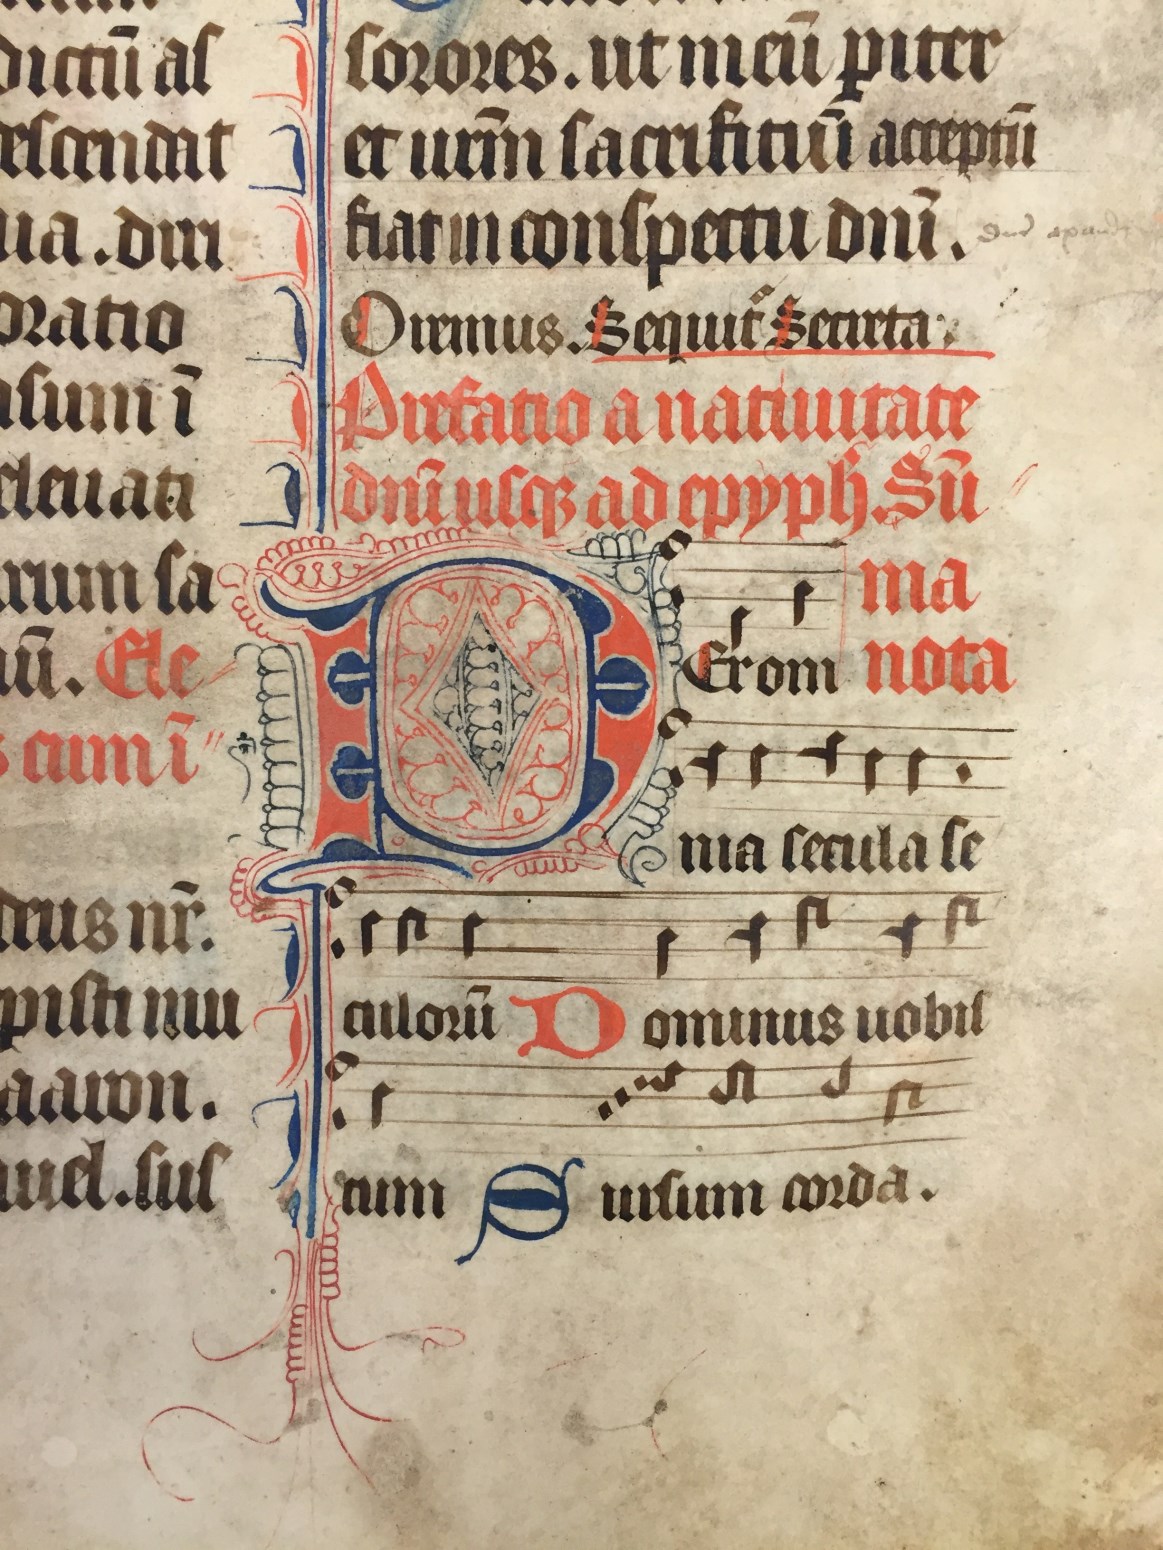 dictū as
escendat
ua . diri
oratio
asum ī
eleuati
arum sa
nū . Ele
s cum ī
deus nr̄.
pisti niu
aaron .
uel . sus
sorores . ut meū p̄iter
et urm̄ sacrificiū acceptū
fiat in conspectu dnī .
Oremus . Sequit᷑ Secreta
Prefatio a natiuitate
dnī usqꝫ ad epyph̄ . Sū
ma
P Er om nota
nia secula se
culorū D ominus uobis
cum S ursum corda .